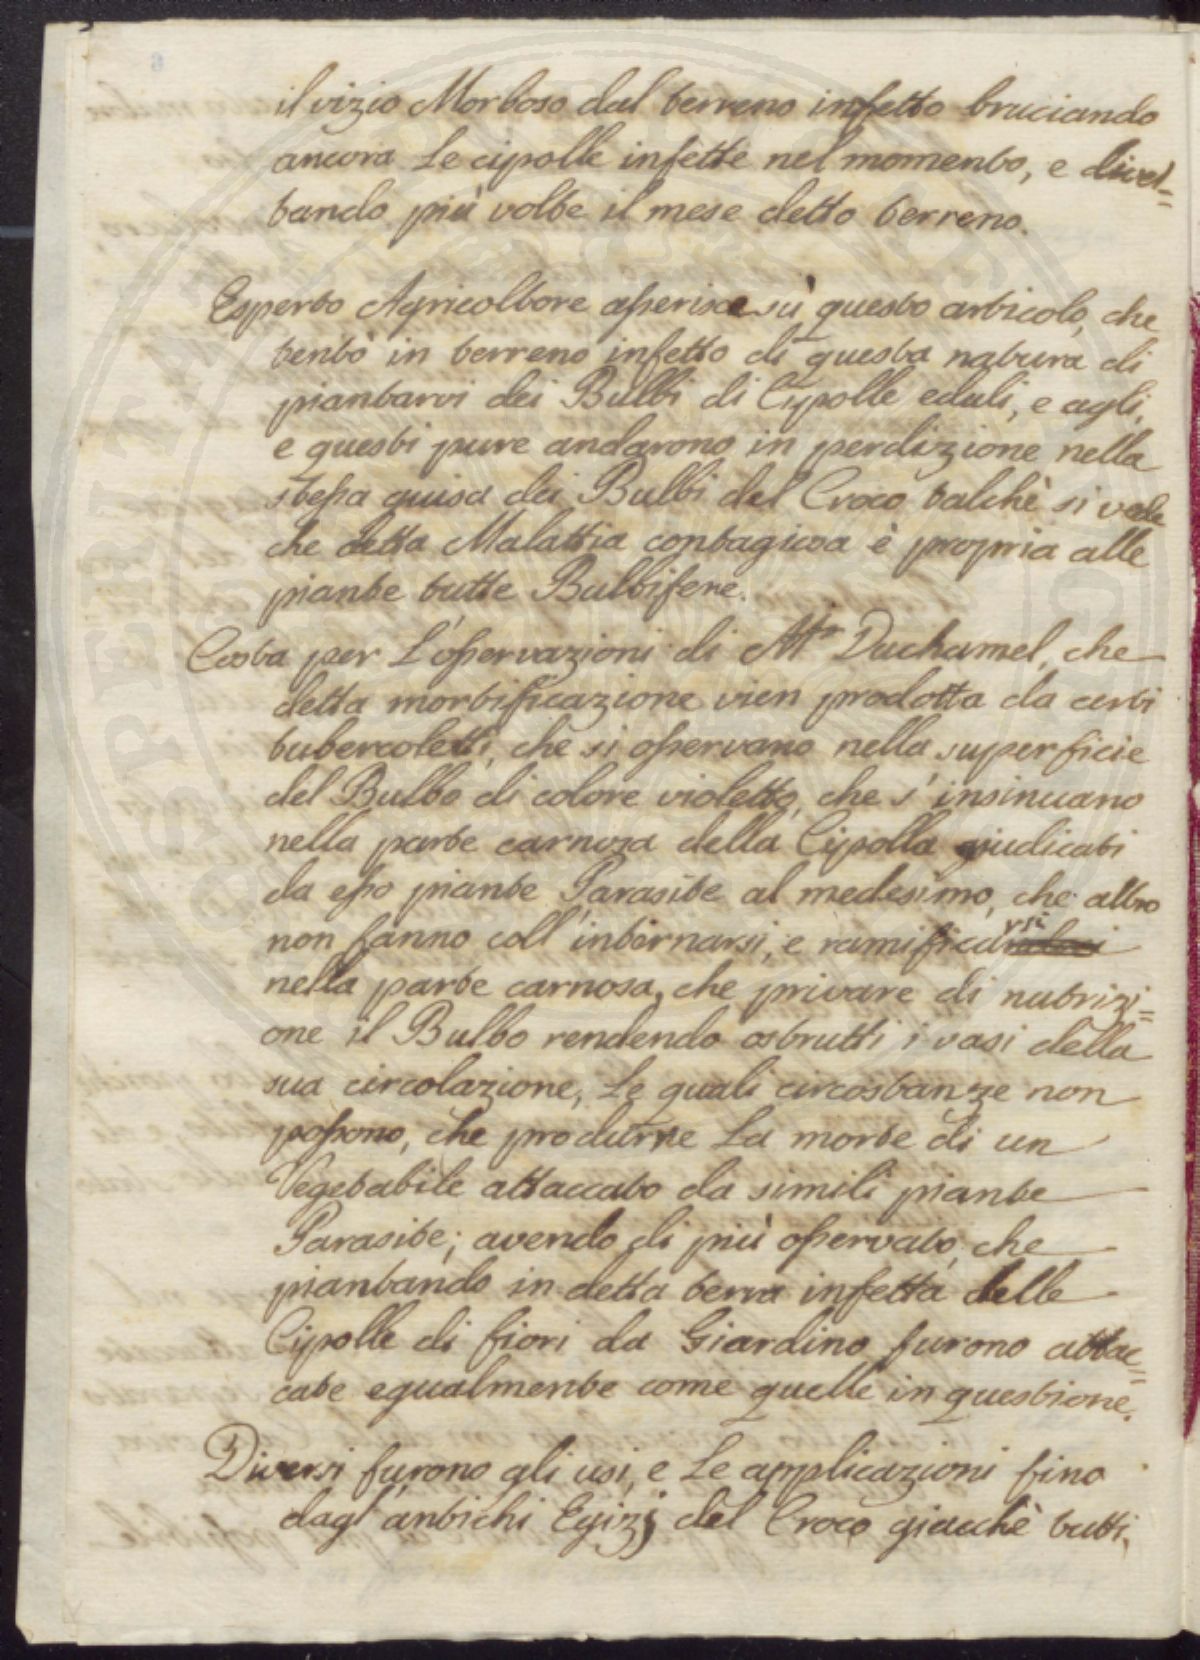 il vizio Morboso dal terreno infetto bruciando
ancora Le cipolle infette nel momento, e divel=
tando più volte il mese detto terreno.
Esperto Agricoltore asserisce sù questo articolo, che
tentò in terreno infetto di questa natura di
piantarvi dei Bulbi di Cipolle eduli, e agli,
e questi pure andarono in perdizione nella
stessa guisa dei Bulbi del Croco talchè si vede
che detta Malattia contagiosa è propria alle
piante tutte Bulbifere.
Costa per L'osservazioni di Mr. Duchamel, che
detta mortificazione vien prodotta da certi
tubercoletti, che si osservano nella superficie
del Bulbo di colore violetto, che s'insinuano
nella parte carnosa della Cipolla giudicati
da esso piante Parasite al medesimo, che altro
non fanno coll'internarsi, e ramificarsi
nella parte carnosa, che privare di nutrizi=
one il Bulbo rendendo ostrutti i vasi della
sua circolazione, Le quali circostanze non
possono, che produrne La morte di un
Vegetabile attaccato da simili piante
Parasite; avendo di più osservato, che
piantando in detta terra infetta delle
Cipolle di fiori da Giardino furono attac=
cate egualmente come quelle in questione.
Diversi furono gli usi, e Le applicazioni fino
dagl'antichi Egizj del Croco giacchè tutti